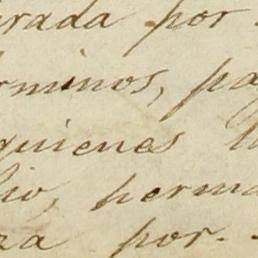 irada por
rminos, pa
quienes
lio, herma
za por